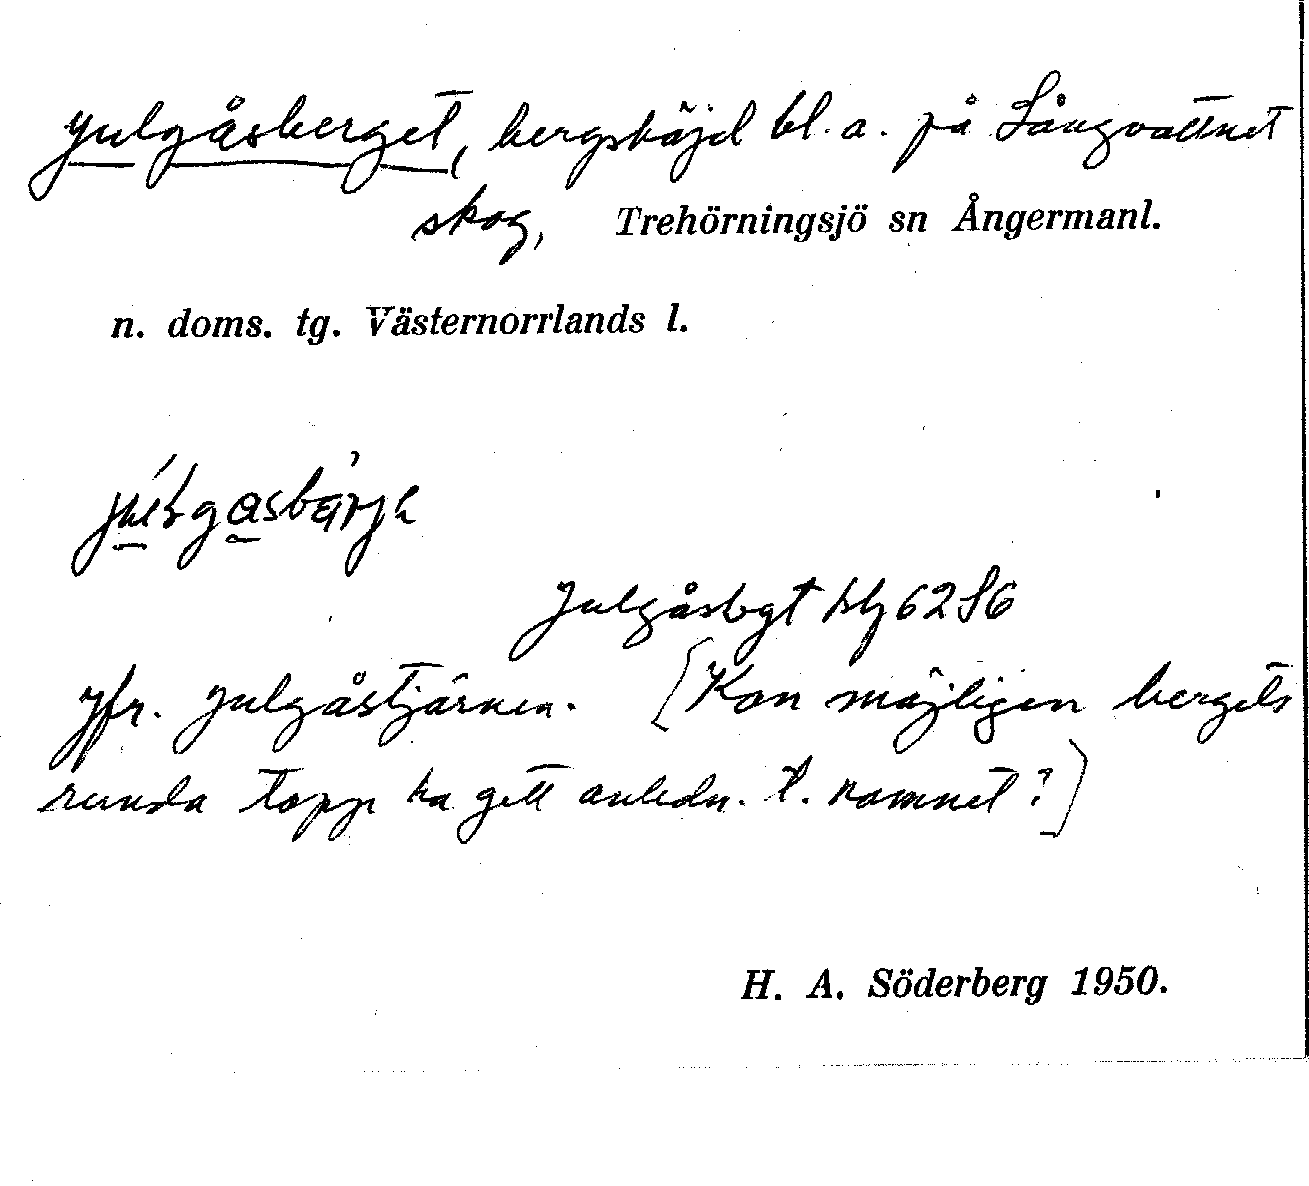 Julgåsberget, bergshöjd bl. a. på Långvattnet
skog, Trehörningsjö sn Ångermanl.
n. doms. tg. Västernorrlands l.
Julgåsbgt
Jfr. Julgåstjärnen. [Kan möjligen bergets
runda topp ha gett anledn. t. namnet?]
H. A. Söderberg 1950.